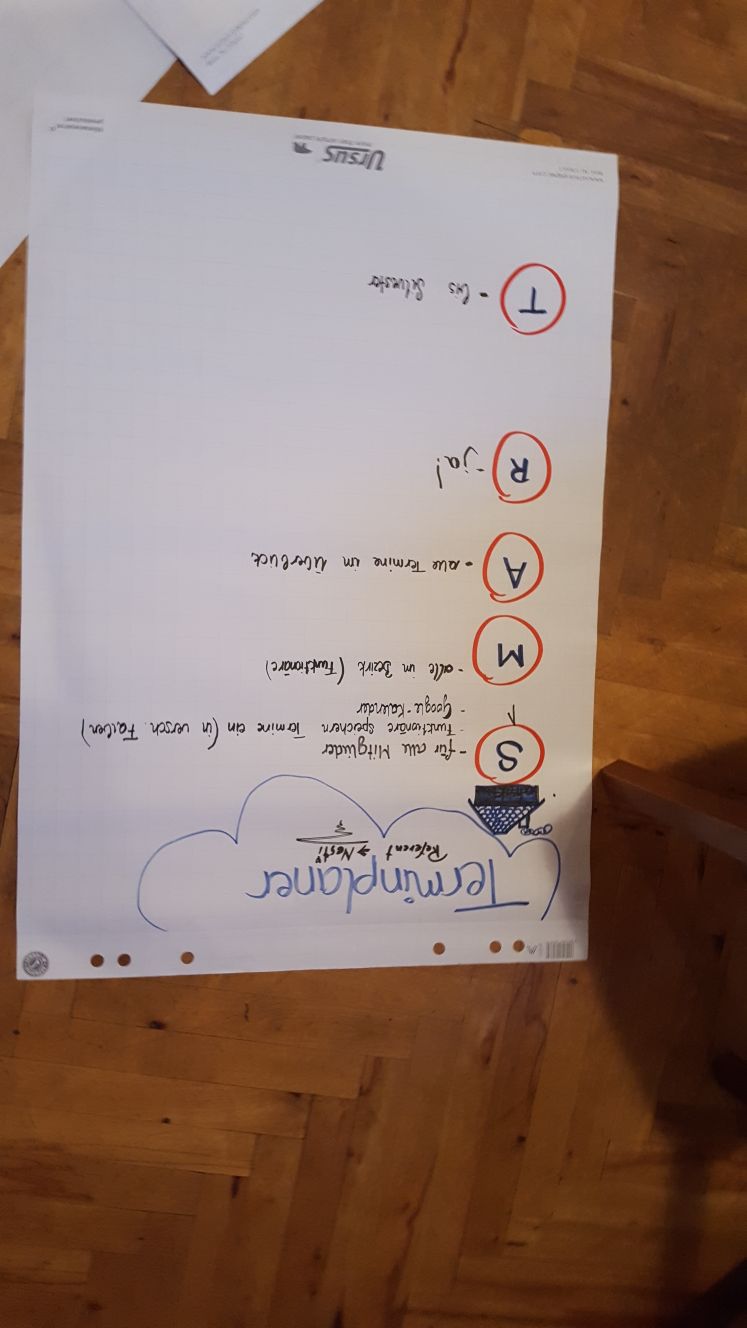 Terminplaner
Referent → Nesti
S
- für alle Mitglieder
- Funktionäre speichern Termine ein (in versch. Farben)
- Google-Kalender
M
- alle in Bezirk (Funktionäre)
A
- alle Termine im Überblick
R
- ja!
T
- bis Silvester
Ursus